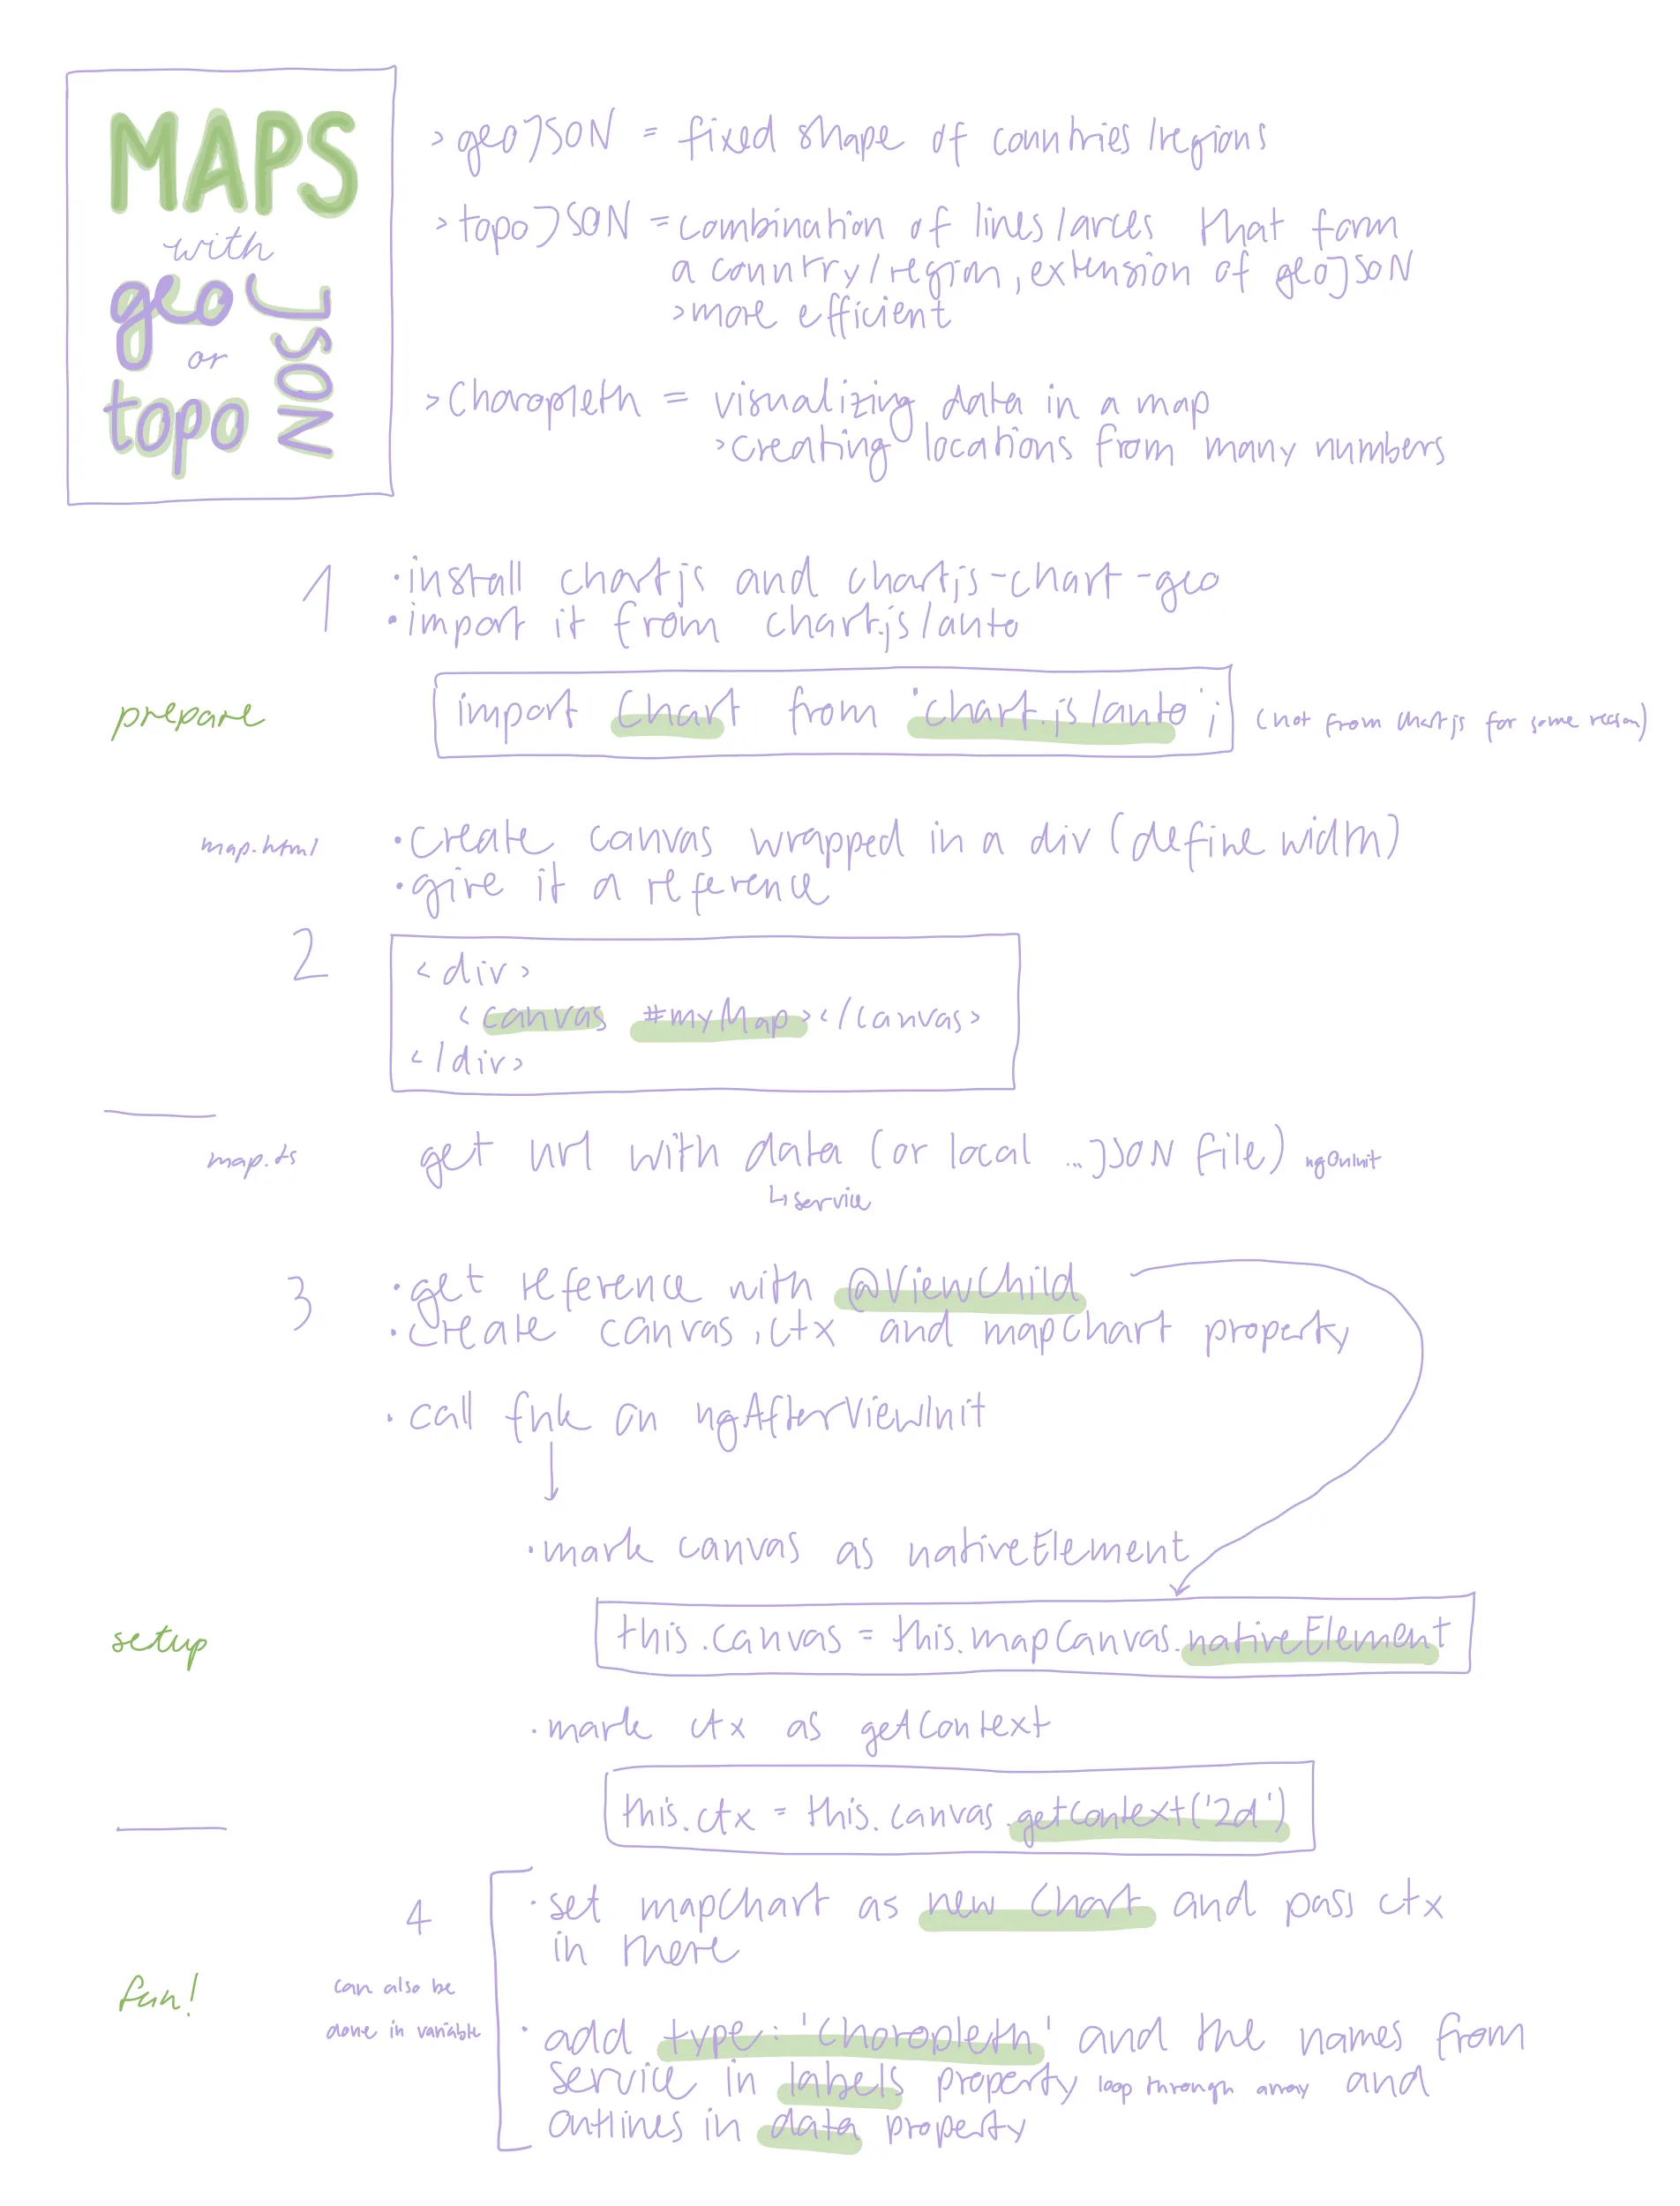 MAPS
with
geo
or
topo
JSON
> geoJSON = fixed shape of countries/regions
> topoJSON = combination of lines/arces that form
a country/region, extension of geoJSON
> more efficient
> Choropleth = visualizing data in a map
> creating locations from many numbers
1
• install chartjs and chartjs-chart-geo
• import it from chart.js/auto
prepare
import Chart from 'chart.js/auto';
(not from chartjs for some reason)
map.html
• create canvas wrapped in a div (define width)
• give it a reference
2
<div>
<canvas #myMap></canvas>
</div>
map.ts
get url with data (or local ...JSON file) ngOnInit
↳ service
3
• get reference with @ViewChild
• create canvas, ctx and mapChart property
• call fnk on ngAfterViewInit
• mark canvas as nativeElement
setup
this.canvas = this.mapCanvas.nativeElement
• mark ctx as getContext
this.ctx = this.canvas.getContext('2d')
4
• set mapChart as new Chart and pass ctx
in there
fun!
can also be
done in variable
• add type: 'Choropleth' and the names from
service in labels property loop through array and
outlines in data property